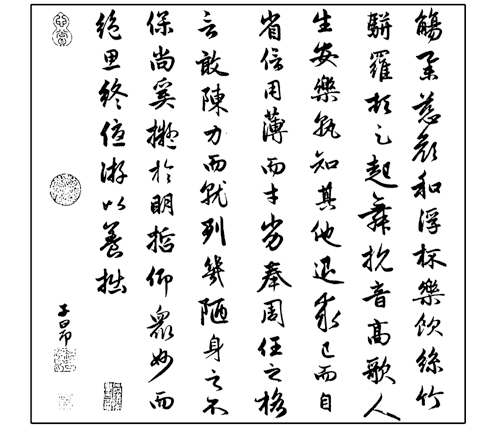 觴舉慈顏和浮杯樂飲絲竹
駢羅頓足起舞抗音高歌人
生安樂孰知其他退求己而自
省信用薄而才劣奉周任之格
言敢陳力而就列幾陋身之不
保尚奚擬於明哲仰眾妙而
絕思終優游以養拙
子昂